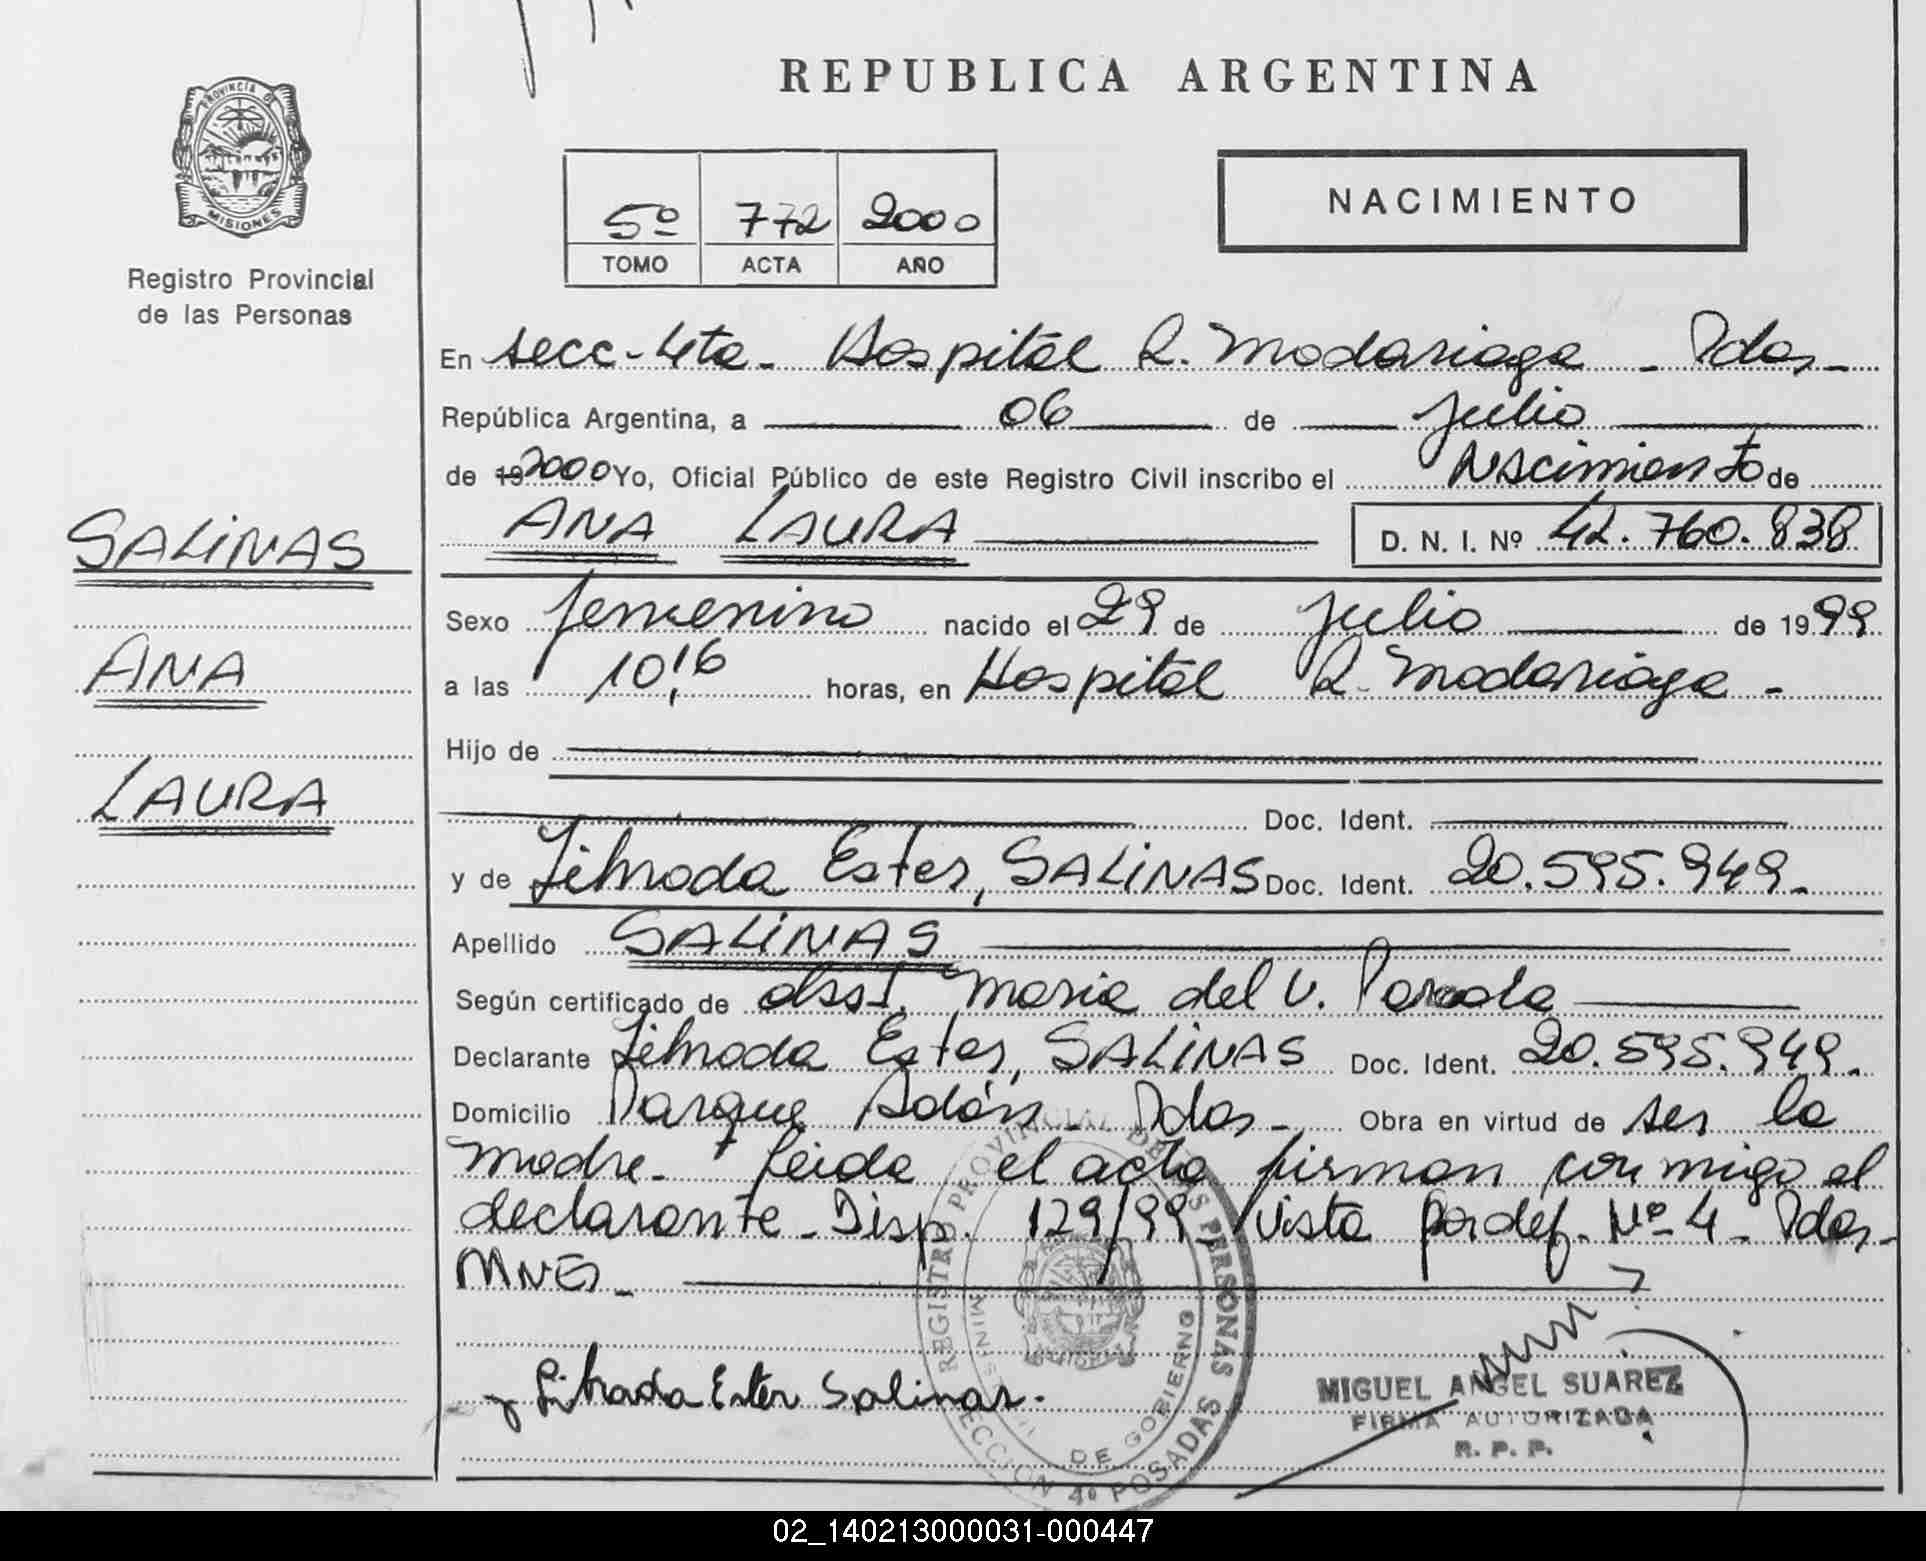 REPUBLICA ARGENTINA
PROVINCIA DE
MISIONES
Registro Provincial
de las Personas
5º 772 2000
TOMO ACTA AÑO
NACIMIENTO
En secc-4ta- Hospital R. Madariaga - Pdas-
República Argentina, a 06 de Julio
de 19 2000 Yo, Oficial Público de este Registro Civil inscribo el Nacimiento de
ANA LAURA D. N. I. Nº 42.760.838
SALINAS
ANA
LAURA
Sexo femenino nacido el 29 de Julio de 1999
a las 10,16 horas, en Hospital R. Madariaga -
Hijo de
Doc. Ident.
y de Librada Ester, SALINAS Doc. Ident. 20.595.949.
Apellido SALINAS
Según certificado de obst. Maria del V. Parada
Declarante Librada Ester, SALINAS Doc. Ident. 20.595.949.
Domicilio Parque Adán - Pdas - Obra en virtud de ser la
madre - Leida el acta firman conmigo el
declarante - Disp. 129/99, Vista por def. Nº 4 - Pdas-
MNES -
Librada Ester Salinas.
REGISTRO PROVINCIAL DE LAS PERSONAS
MINIST DE GOBIERNO
SECCION 4º POSADAS
MIGUEL ANGEL SUAREZ
FIRMA AUTORIZADA
R. P. P.
02_140213000031-000447